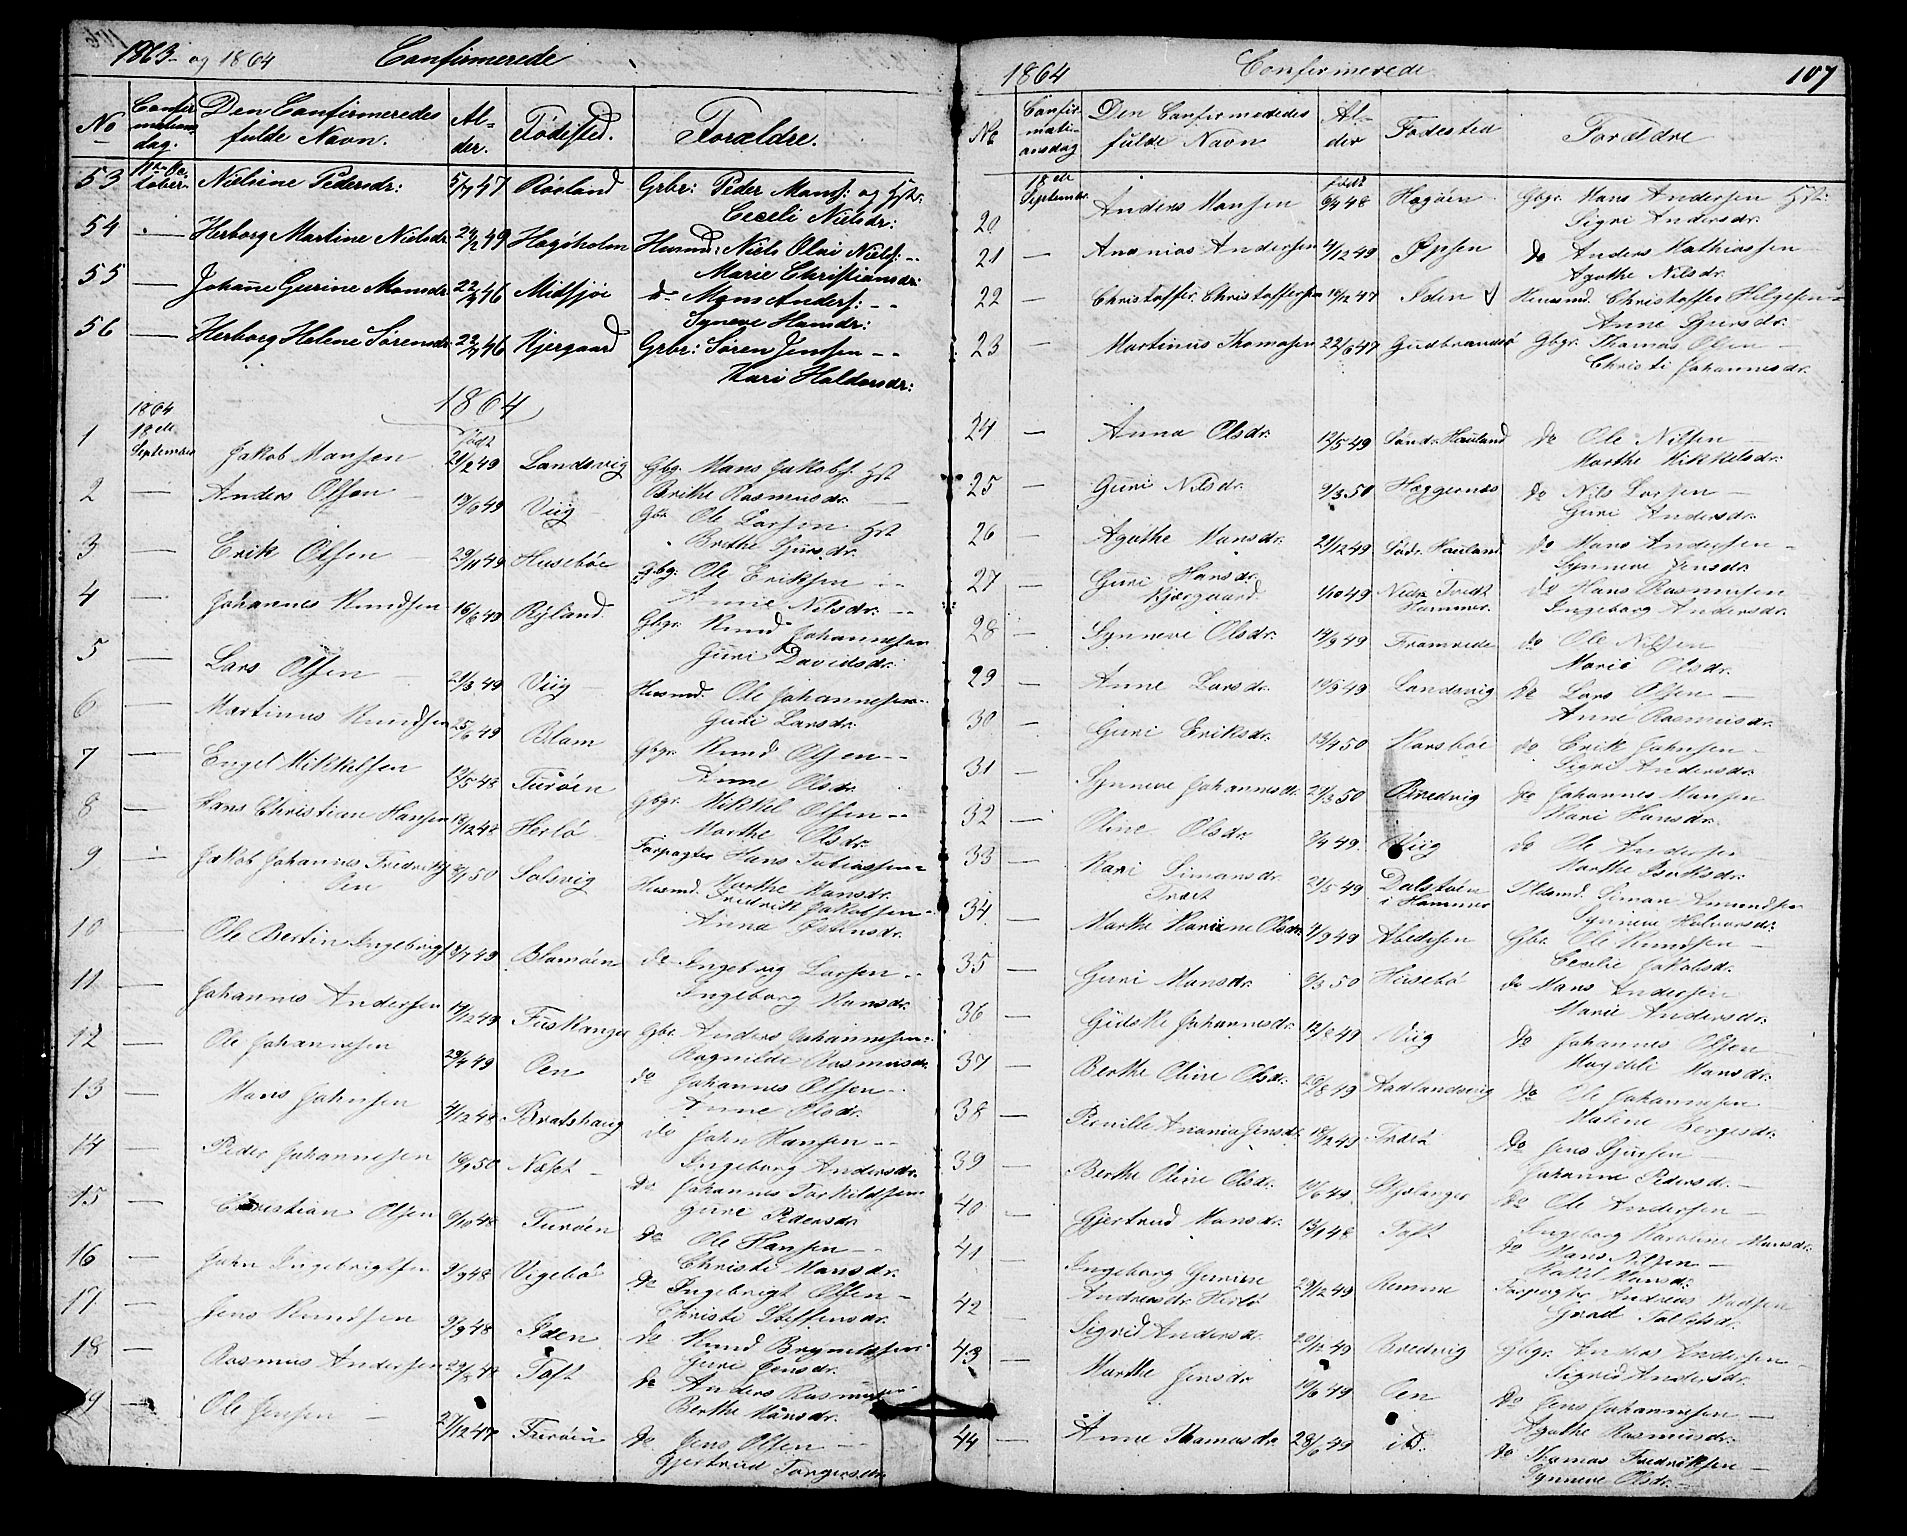 1863 og 1864 Confirmerede
No Confirmations dag. Den Confirmeredes fulde Navn. Alder. Födested. Forældre.
53 Nielsine Pedersdr: 5/7 47 Rösland Grbr: Peder Monss: og Hst:
Ceceli Nielsdr:
54 — Herborg Martine Nielsdr. 49 Hagöholm Husmd: Niels Olai Niels: --
Marie Christiansdr:
55 — Johane Gurine Monsdr. 46 Midsjöe do Mons Anders: --
Syneve Hansdr:
56 — Herborg Helene Sörensdr. 46 Kjergaard Grbr: Sören Jenssen --
Kari Haldorsdr:
1864
1864
1 18de September Jakob Monsen födt 49 Landsvig Gbgr. Mons Jakobs. Hst
Brithe Rasmusdr.
2 — Anders Olsen 49 Viig Gbr. Ole Larsen Hst
Brethe Sjursdr.
3 — Erik Olsen 29/11 49 Huseböe Gbgr. Ole Eriksen --
Anne Nilsdr. --
4 — Johannes Knudsen 49 Rÿland Gbgr. Knud Johannessen
Guri Davidsdr.
5 — Lars Olsen 21/3 49 Viig Husmd. Ole Johannessen
Guri Larsdr.
6 — Martinus Knudsen 49 Blom Gbgr. Knud Olsen --
Anne Olsdr.
7 — Engel Mikkelsen 48 Turöen Gbgr. Mikkel Olsen --
Marthe Olsdr.
8 — Hans Christian Hansen 48 Herlö Forpagter Hans Tobiassen
Marthe Monsdr.
9 — Jakob Johannes Fredriks 50 Solsvig Husmd. Fredrik Jakobsen
Oen Anna Östensdr.
10 Ole Bertin Ingebrigts 49 Blomöen do Ingebrig Larsen --
Ingeborg Monsdr.
11 — Johannes Andersen 49 Fuskanger Gbr. Anders Johannesen
Ragnilde Rasmusdr.
12 — Ole Johannesen 49 Oen do Johannes Olsen --
Anne Olsdr.
13 — Mons Johnsen 48 Bratshaug do John Hansen --
Ingeborg Andersdr.
14 — Peder Johannessen 50 Næset do Johannes Torkildsen
Guri Pedersdr.
15 — Christian Olsen 48 Turöen do Ole Hansen --
Christi Monsdr.
16 — John Ingebrigtsen 48 Vigebö do Ingebrigt Olsen --
Christi Steffensdr.
17 — Jens Knudsen 48 Iden do Knud Brynildsen
Guri Jensdr.
18 — Rasmus Andersen Toft do Anders Rasmusen
Berthe Monsdr.
19 — Ole Jensen 47 Turöen do Jens Olsen --
Gjertrud Torgersdr.
1864 Confirmerede 107
No Confirmationsdag Den Confirmeredes fulde Navn Alder Födested Forældre
20 18de September Anders Monsen födt 48 Hagöen Gbgr. Mons Andersen Hst:
Sigri Andersdr.
21 — Ananias Andersen 49 do Anders Mathiassen
Agathe Nilsdr.
22 — Christoffer Christoffersen 47 Iden Husmd. Christoffer Helgesen
Anne Sjursdr.
23 — Martinus Thomasen 22/6 47 Gudbrandsö Gbgr. Thomas Olsen
Christi Johannesdr.
24 — Anna Olsdr. 12/5 49 Söndr. Hauland do Ole Nilsen
Marthe Mikkelsdr.
25 — Guri Nilsdr. 9/3 50 Hæggernæs do Nils Larsen
Guri Andersdr.
26 — Agathe Monsdr. 21/12 49 Södr. Hauland do Mons Andersen
Synneve Jensdr.
27 — Guri Hansdr. 1/10 49 Nedr. Tvedt do Hans Rasmusen
Kjærgaard Hammer. Ingeborg Andersdr.
28 — Synneve Olsdr. 49 Framrede do Ole Nilsen
Marie Olsdr.
29 — Anne Larsdr. 49 Landsvig do Lars Olsen
Anne Rasmusdr.
30 — Guri Eriksdr. 13/4 50 do Erik Johnsen
Sigri Andersdr.
31 — Synneve Johannesdr. 50 Bredvig do Johannes Monsen
Kari Hansdr.
32 — Oline Olsdr. 49 Viig do Ole Andersen
Marthe
33 — Kari Simonsdr. 49 Dalstöen Simon Amundsen
Træet i Hammer Synneve Halvorsdr.
34 — Marthe Karine Olsdr. 49 Gbr. Ole Knudsen
Cecelie Jakobsdr.
35 — Guri Monsdr. 50 Husebö do Mons Andersen
Marie Andersdr.
36 — Gidske Johannesdr. 12/8 49 Viig do Johannes Olsen
Magdeli Monsdr.
37 — Berthe Oline Olsdr. 49 Aadlandsvig do Ole Johannesen
Maline Borgesdr.
38 — Pernille Anania Jensdr. 49 Træet do Jens Sjursen
Johanne Pedersdr.
39 — Berthe Oline Olsdr. 49 do Ole Andersen
Ingeborg Karoline Monsdr.
40 — Gjertrud Monsdr. 13/1 48 Toft do Mons Nilsen
Rakel Monsdr.
41 — Ingeborg Gurine 29/12 49 Remme Forpagter Andreas Madsen
Andreasdr. Herlö
42 Sigrid Andersdr. 49 Bredvig Gbgr. Anders Andersen
Sigrid Andersdr.
43 — Marthe Jensdr 49 Oen do Jens Johannesen
Agathe Rasmusdr.
44 — Anne Thomasdr. 28/6 49 ibd. do Thomas Fredriksen
Synneve Olsdr.